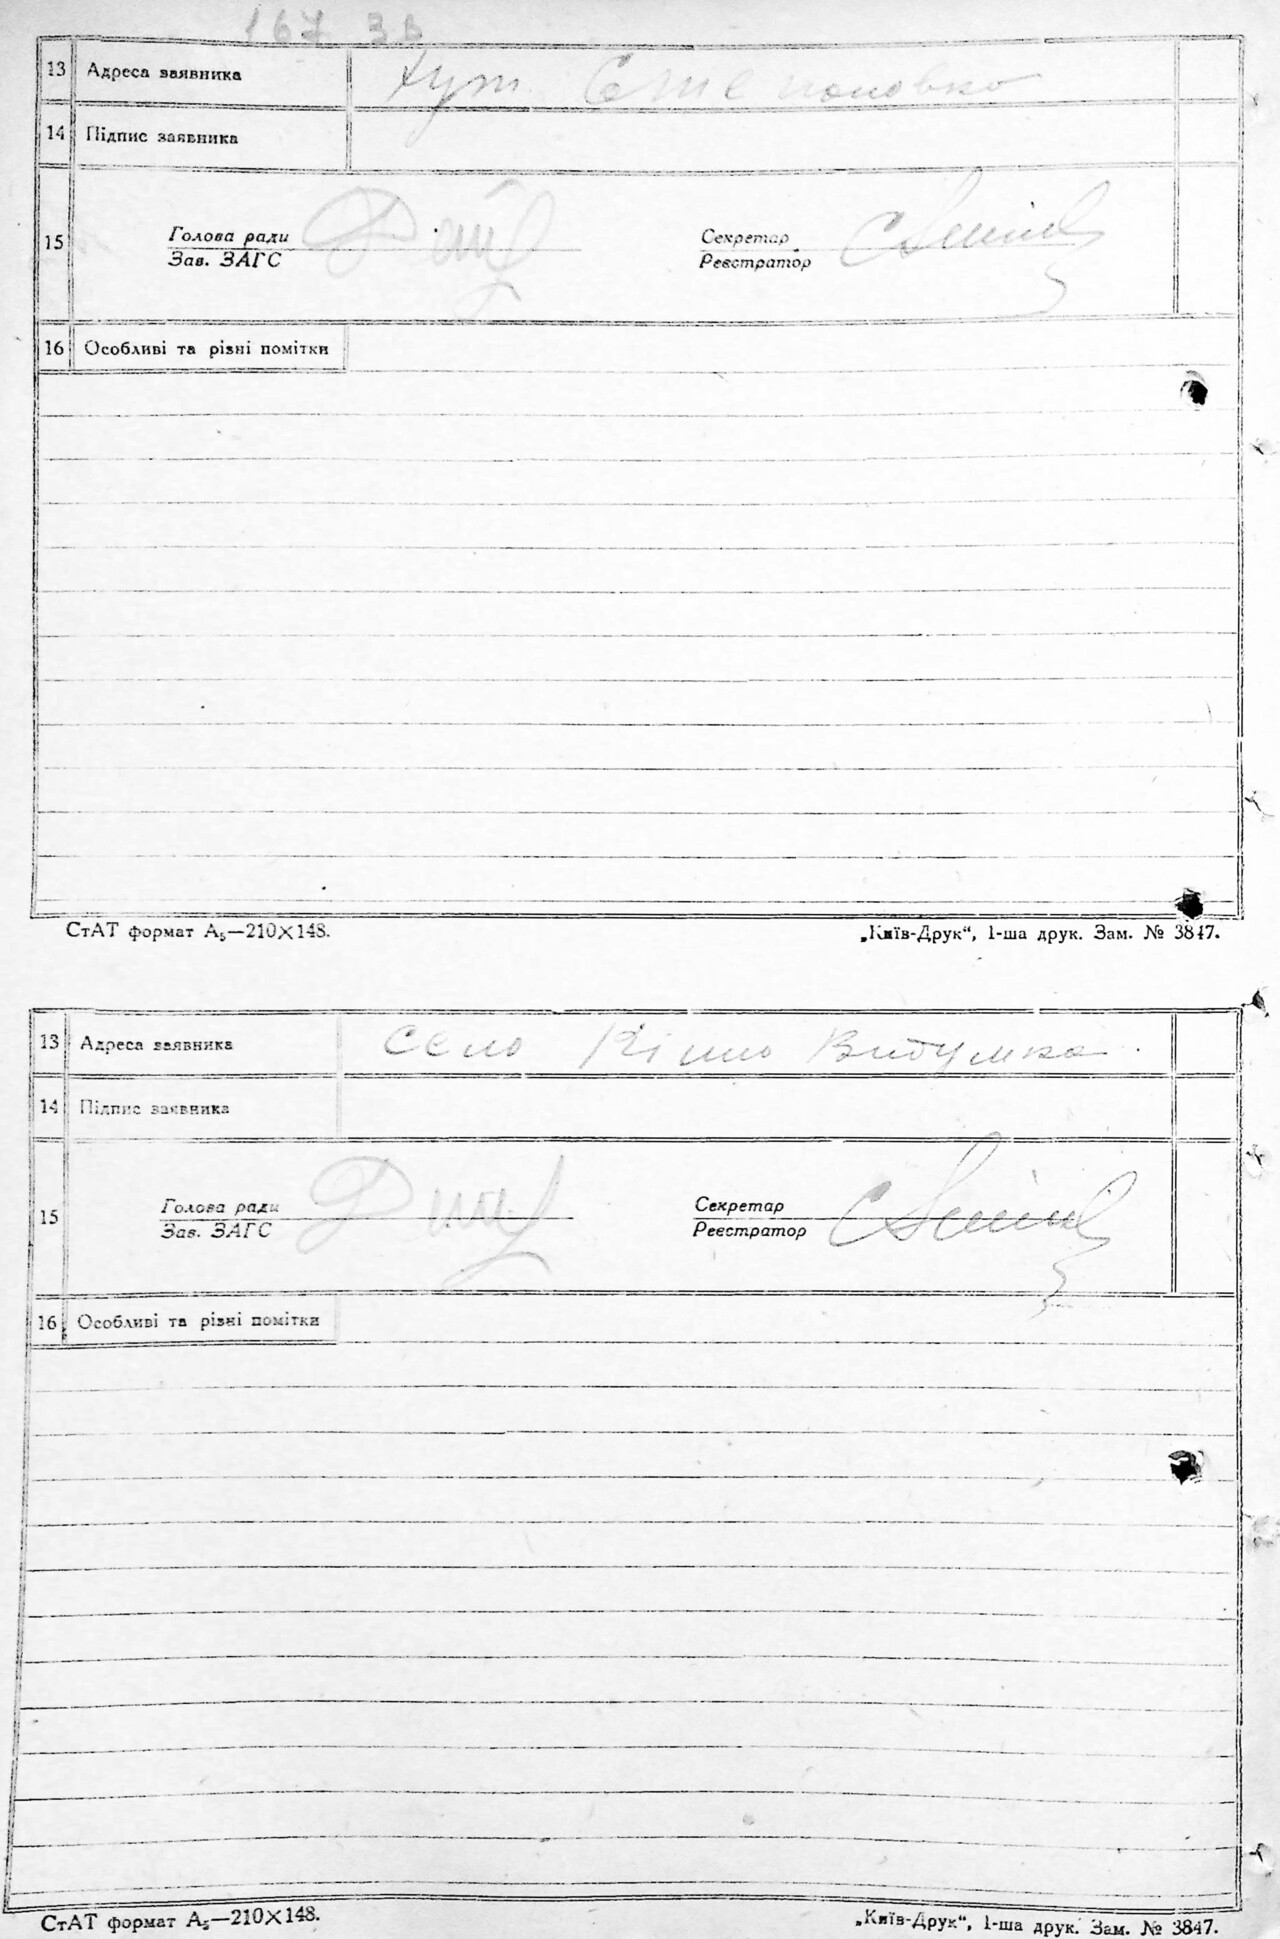 167 зв
13 Адреса заявника Хут. Степановка
14 Підпис заявника
15 Голова ради Секретар
Зав. ЗАГС Реєстратор
16 Особливі та різні помітки
СтАТ формат А₅—210×148. „Київ-Друк“, 1-ша друк. Зам. № 3847.
13 Адреса заявника село
14 Підпис заявника
15 Голова ради Секретар
Зав. ЗАГС Реєстратор
16 Особливі та різні помітки
СтАТ формат А₅—210×148. „Київ-Друк“, 1-ша друк. Зам. № 3847.